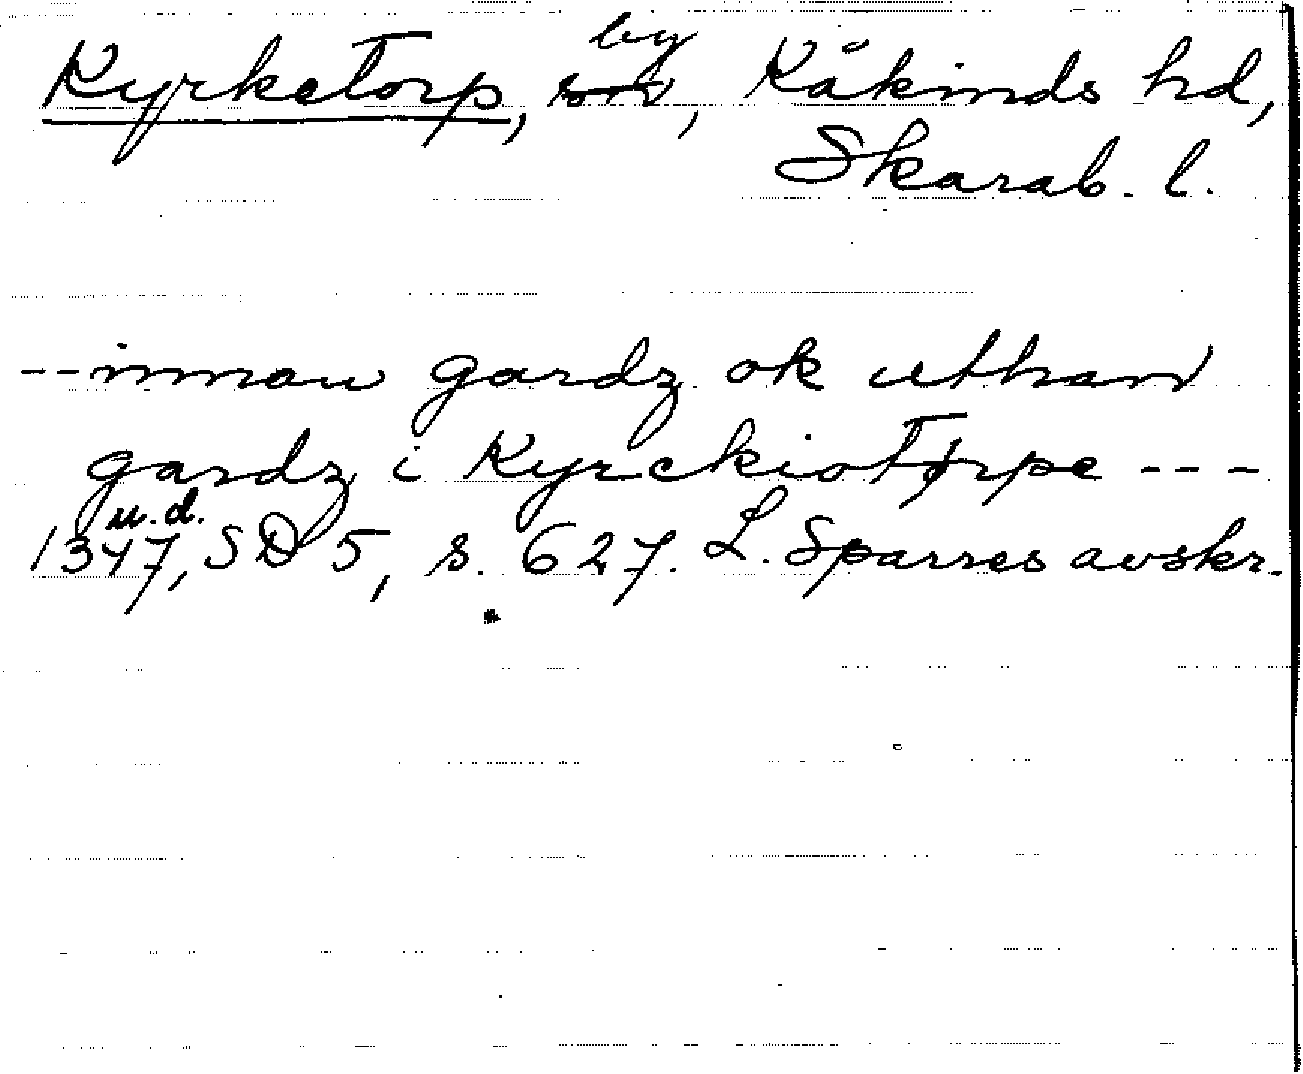 by
Kyrketorp, sn, Kåkinds hd,
Skarab. l.
--innan gardz ok uthan
gardz i Kyrckiotørpe ---
u.d.
1347, SD 5, s. 627. L. Sparres avskr.